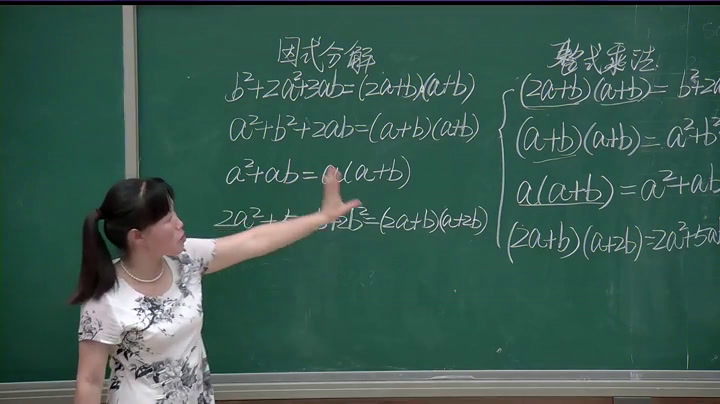 因式分解
b²+2a²+3ab=(2a+b)(a+b)
a²+b²+2ab=(a+b)(a+b)
a²+ab=a(a+b)
2a²+5 +2b²=(2a+b)(a+2b)
整式乘法
(2a+b)(a+b)= b²+2a
(a+b)(a+b)=a²+b²
a(a+b)=a²+ab
(2a+b)(a+2b)=2a²+5a